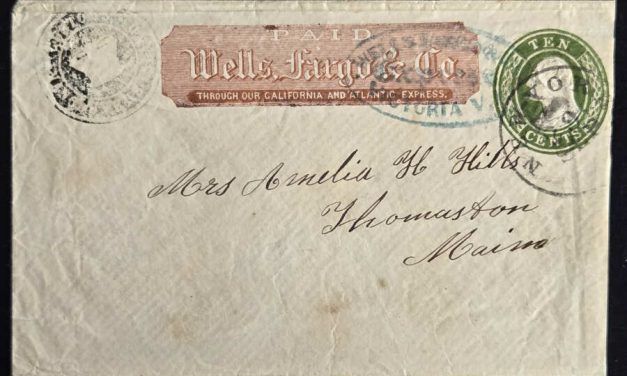 PAID
Wells, Fargo & Co.
THROUGH OUR CALIFORNIA AND ATLANTIC EXPRESS.
TEN
CENTS
Mrs Amelia H Hills
Thomaston
Maine